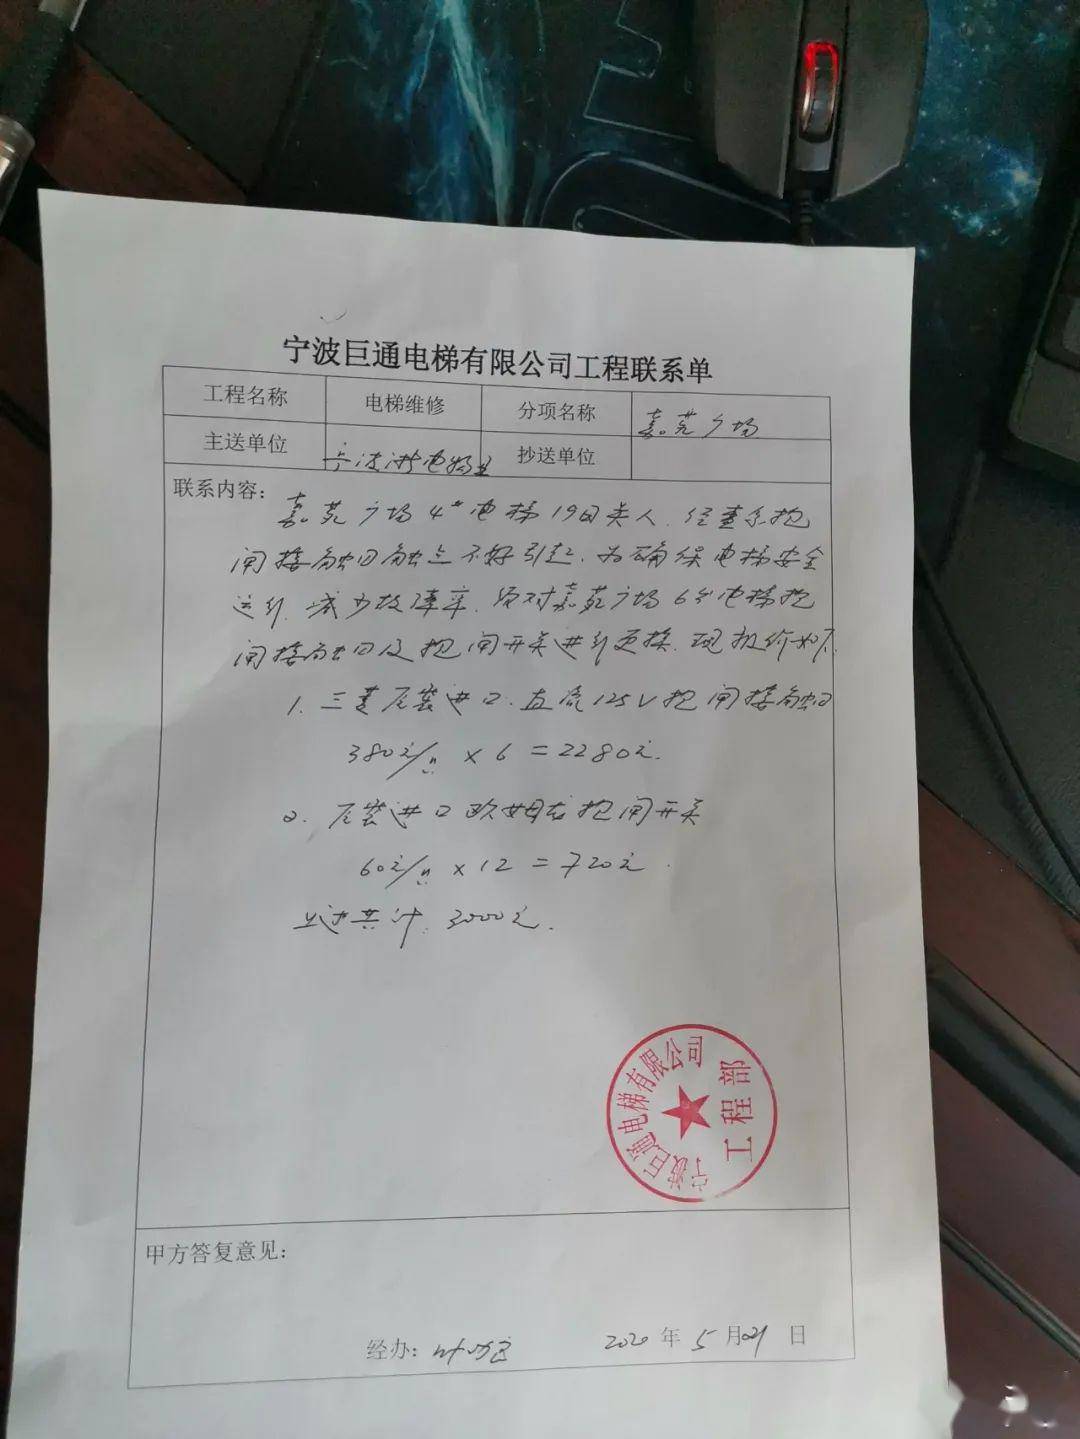 宁波巨通电梯有限公司工程联系单
工程名称 电梯维修 分项名称 嘉苑广场
主送单位 宁波浙电物业 抄送单位
联系内容：
嘉苑广场4#电梯19日关人.经查系抱
闸接触口触点不好引起.为确保电梯安全
运行.减少故障率.须对嘉苑广场6台电梯抱
闸接触口及抱闸开关进行更换.现报价如下.
1.三菱原装进口.直流125V抱闸接触口
380元/只×6=2280元.
2.原装进口欧姆龙抱闸开关
60元/只×12=720元.
上述共计:3000元.
宁波巨通电梯有限公司
工程部
甲方答复意见：
经办: 2020年5月21日